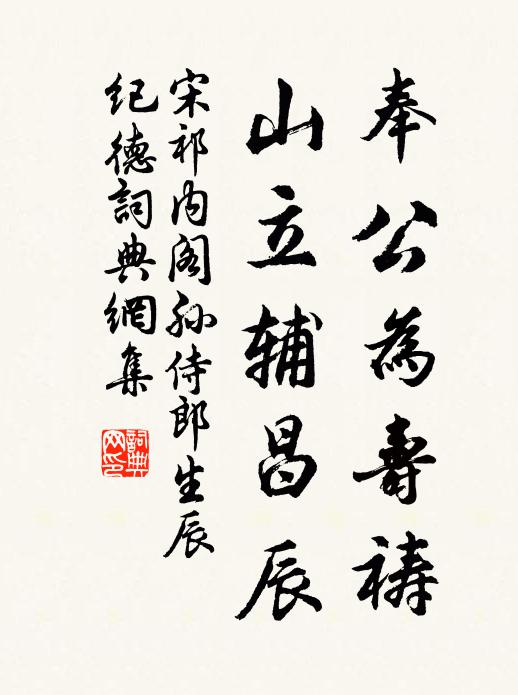 奉公為壽禱
山立輔昌辰
宋祁內閣孫侍郎生辰
紀德詞典網集
詞典
网印